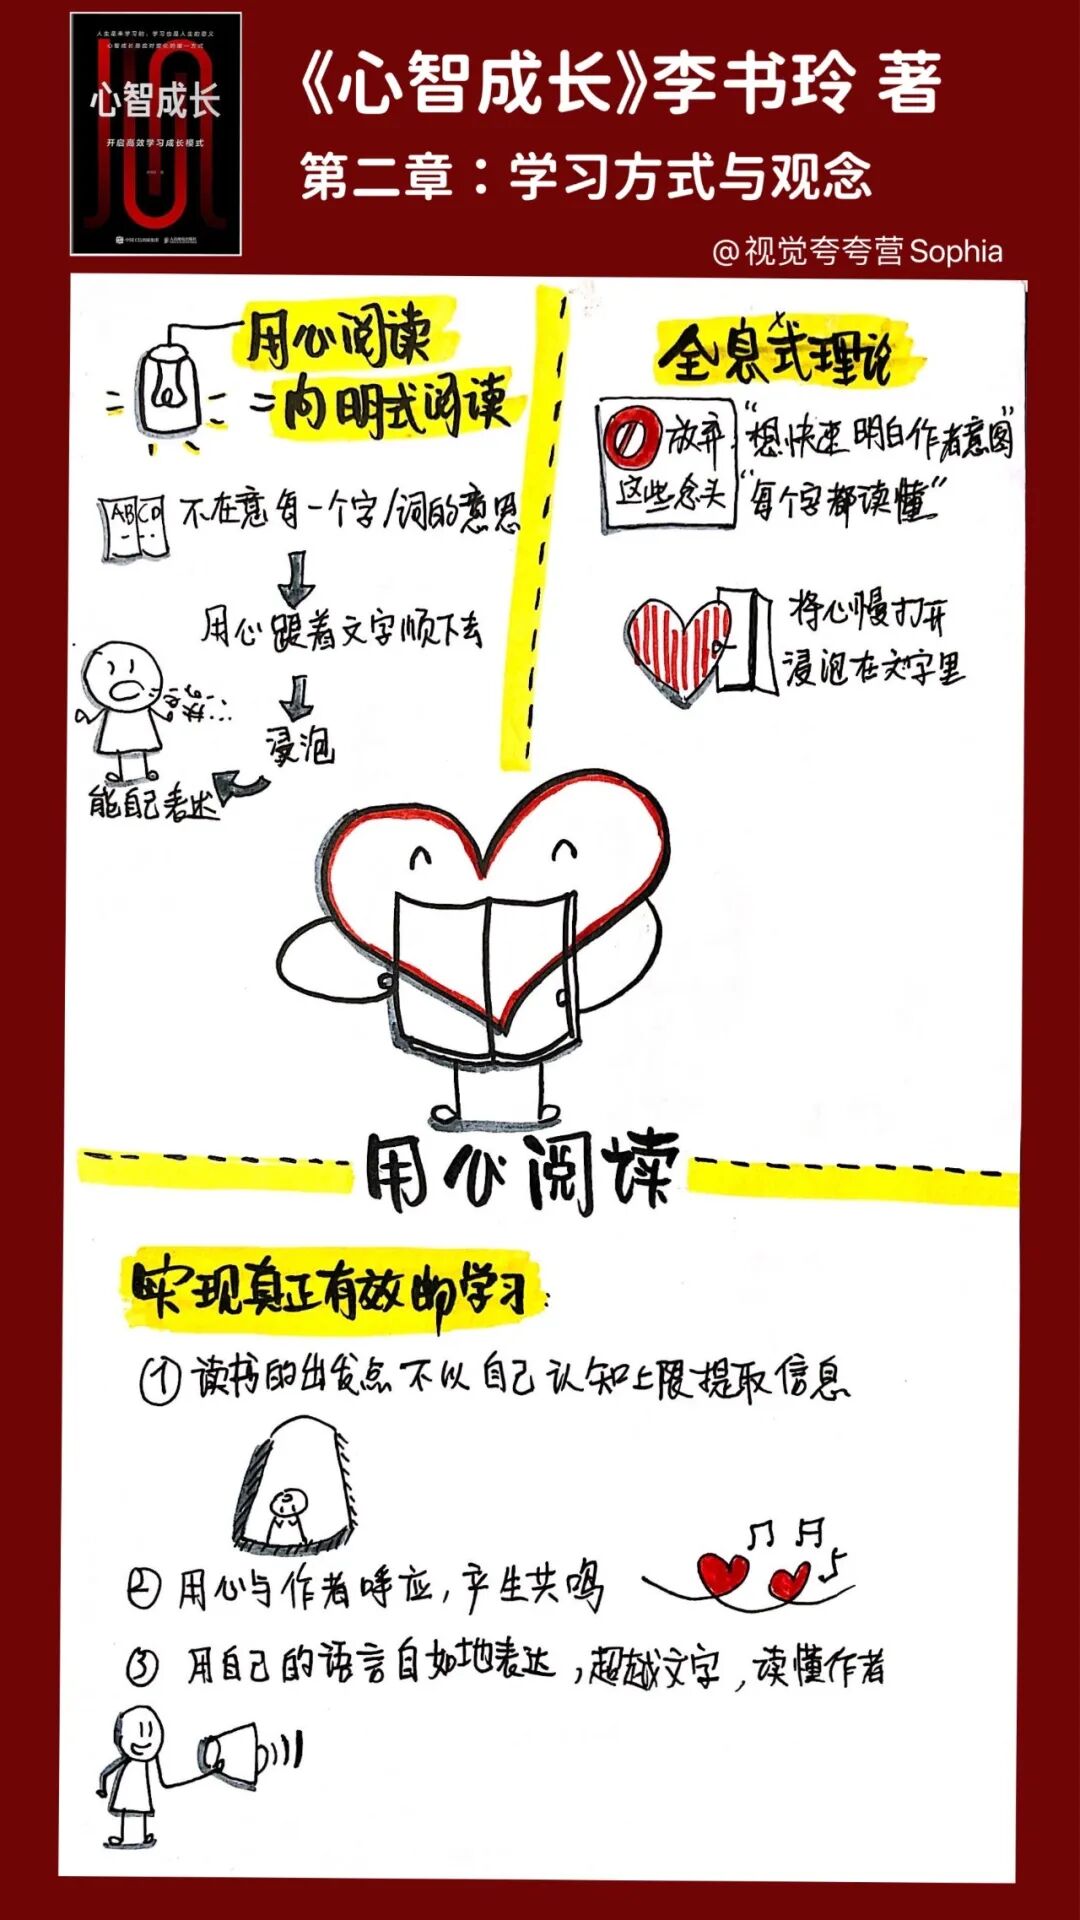 人生是来学习的，学习也是人生的意义
心智成长是应对变化的唯一方式
心智成长
开启高效学习成长模式
《心智成长》李书玲 著
第二章：学习方式与观念
@视觉夸夸营Sophia
用心阅读
=内明式阅读
ABCD
不在意每一个字/词的意思
用心跟着文字顺下去
浸泡
能自己表达
全息式理论
放弃
这些念头
“想快速明白作者意图”
“每个字都读懂”
将心慢打开
浸泡在文字里
用心阅读
实现真正有效的学习：
① 读书的出发点不以自己认知上限提取信息
② 用心与作者呼应，产生共鸣
③ 用自己的语言自如地表达，超越文字，读懂作者